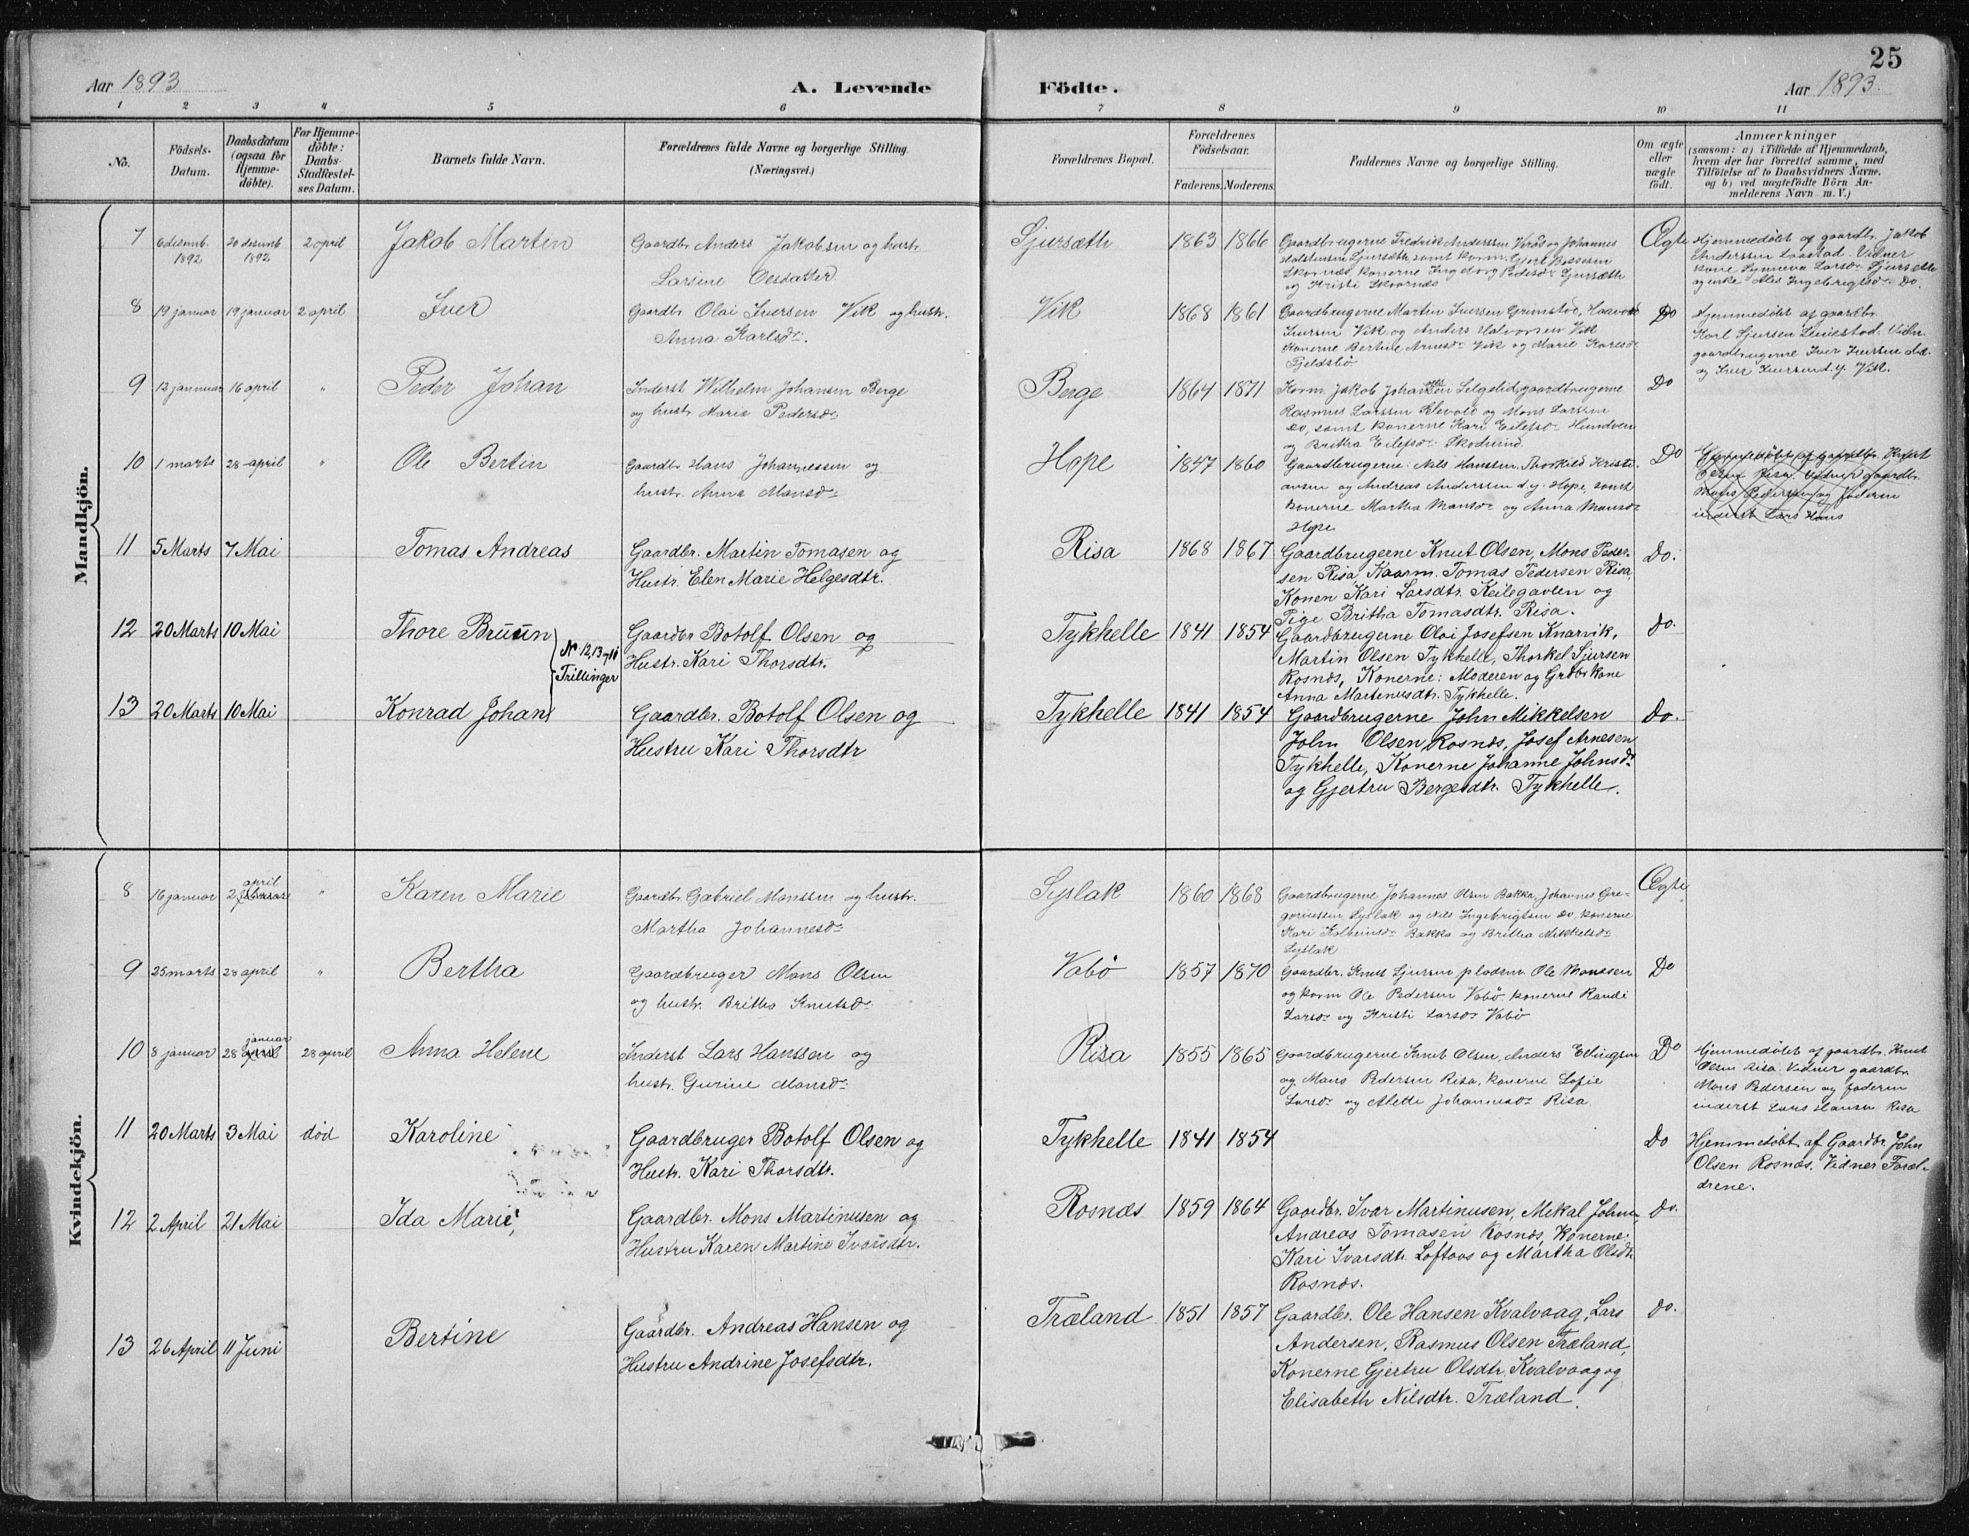 25
Aar 1893
A. Levende
Födte.
Aar 1893.
1 2 3 4 5 6 7 8 9 10 11
No.
Födsels-
Datum.
Daabsdatum
(ogsaa for
Hjemme-
döbte).
For Hjemme-
döbte:
Daabs-
Stadfæstel-
ses Datum.
Barnets fulde Navn.
Forældrenes fulde Navne og borgerlige Stilling.
(Næringsvei.)
Forældrenes Bopæl.
Forældrenes
Födselsaar.
Faderens. Moderens.
Faddernes Navne og borgerlige Stilling.
Om ægte
eller
uægte
födt.
Anmærkninger
(saasom: a) i Tilfælde af Hjemmedaab,
hvem der har forrettet samme, med
Tilföielse af to Daabsvidners Navne,
og b) ved uægtefödte Börn An-
melderens Navn m. V.)
Mandkjön.
7 6 desemb. 1892 20 desemb 1892 2 april Jakob Martin
Gaardbr. Anders Jakobsen og hustr.
Larsine Olsdatter
Sjursæth 1863 1866
Gaardbrugerne Fredrik Anderssen og Johannes
Sjursæth samt
konerne Ingeborg Pedersd. Sjursæth
og Kristi
Ægte
Hjemmedøbt af gaardbr. Jakob
Anderssen Vidner
kone Synneva Larsd. Sjursæth
og enke Ales Ingebrigtsd. Do.
8 19 januar 19 januar 2 april Iver
Gaardbr Olai Iversen Vik og hustr.
Anna Karlsd.
Vik 1868 1861
Gaardbrugerne Martin Iversen Grimstad,
Iversen Vik og Anders Halvorsen Vik
Konerne Bertine Arnesd. Vik og Marie Karlsd.
Fjeldsbø
Do
Hjemmedøbt af gaardbr.
Karl Sjursen Vidn.
gaardbrugerne Iver Iversen
og Iver Iversen d.y. Vik.
9 12 januar 16 april " Peder Johan
Inderst Wilhelm Johansen Berge
og hustr. Marie Pedersd.
Berge 1864 1871
Korm. Jakob Johansen gaardbrugerne
Rasmus Larssen og Mons Larssen
Do, samt konerne Kari Eilefsd. Hundven
og Britha Eilefsd.
Do
10 1 marts 28 april " Ole Bertin
Gaardbr. Hans Johannessen og
hustr. Anna Monsd.
Hope 1847 1860
Gaardbrugerne: Nils Hanssen, Thorkild Kristi-
ansen og Andreas Anderssen d.y. Hope, samt
konerne Martha Monsd. og Anna Monsd.
Hope
Do
Hjemmedøbt af gaardbr. Knut
Olsen Risa. Vidner gaardbr.
Mons Pedersen og faderen
inderst Lars Hans
11 5 Marts 7 Mai Tomas Andreas
Gaardbr. Martin Tomasen og
Hustr. Elen Marie Helgesdtr.
Risa 1868 1867
Gaardbrugerne Knut Olsen, Mons Peder-
sen Risa, Kaarm. Tomas Pedersen Risa,
Konen Kari Larsdtr. Keilegavlen og
Pige Britha Tomasdtr. Risa.
Do.
12 20 Marts 10 Mai Thore Bruun
N 12, 13 og 11
Trillinger
Gaardbr Botolf Olsen og
Hustr. Kari Thorsdtr.
Tykhelle 1841 1854
Gaardbrugerne Olai Josefsen Knarvik,
Martin Olsen Tykhelle, Thorkel Sjursen
Rosnæs, Konerne: Moderen og Grdbr. kone
Anna Martinusdtr. Tykhelle.
do.
13 20 Marts 10 Mai Konrad Johan
Gaardbr. Botolf Olsen og
Hustru Kari Thorsdtr
Tykhelle 1841 1854
Gaardbrugerne John Mikkelsen
John Olsen, Rosnæs, Josef Arnesen
Tykhelle, Konerne Johanne Johnsd.
og Gjertru Bergesdtr. Tykhelle.
Do.
Kvindekjön.
8 16 januar 2 april februar " Karen Marie
Gaardbr Gabriel Monssen og hustr.
Martha Johannesd.
Syslak 1860 1868
Gaardbrugerne Johannes Olsen Bakka, Johannes Gre-
goriussen Syslak og Nils Ingebrigtsen Do, konerne
Kari Bakka og Britha Mikkelsd.
Syslak
Ægte
9 25 marts 28 april " Bertha
Gaardbruger Mons Olsen
og hustr. Britha Knutsd.
Vabø 1857 1870
Gaardbr. Knut Sjursen pladsm. Ole Monssen
og korm Ole Pedersen Vabø, konerne Randi
Larsd. og Kristi Larsd. Vabø
Do
10 8 januar 28 januar april 28 april Anna Helene
Inderst Lars Hanssen og
hustr. Gurine Monsd.
Risa 1855 1865
Gaardbrugerne Knut Olsen, Anders Ellingsen
og Mons Pedersen Risa, konerne Sofie
Larsd. og Alette Johannesd. Risa
Do
Hjemmedøbt af gaardbr. Knut
Olsen Risa. Vidner gaardbr
Mons Pedersen og faderen
inderst Lars Hansen Risa
11 20 Marts 3 Mai død Karoline
Gaardbruger Botolf Olsen og
Hustr. Kari Thorsdtr.
Tykhelle 1841 1854
Do
Hjemmedøbt af Gaardbr. John
Olsen Rosnæs. Vidner Foræl-
drene.
12 2 April 21 Mai Ida Marie
Gaardbr. Mons Martinusen og
Hustru Karen Martine Ivarsdtr.
Rosnæs 1859 1864
Gaardbr. Ivar Martinusen, Mikal Johnsen,
Andreas Tomasen Rosnæs, Konerne:
Kari Ivarsdtr. Loftaas og Martha Olsdtr.
Rosnæs.
do.
13 26 April 11 Juni Bertine
Gaardbr. Andreas Hansen og
Hustru Andrine Josefsdtr.
Træland 1851 1857
Gaardbr. Ole Hansen Kvalvaag, Lars
Andersen, Rasmus Olsen Træland,
Konerne Gjertru Olsdtr. Kvalvaag og
Elisabeth Nilsdtr. Træland.
do.